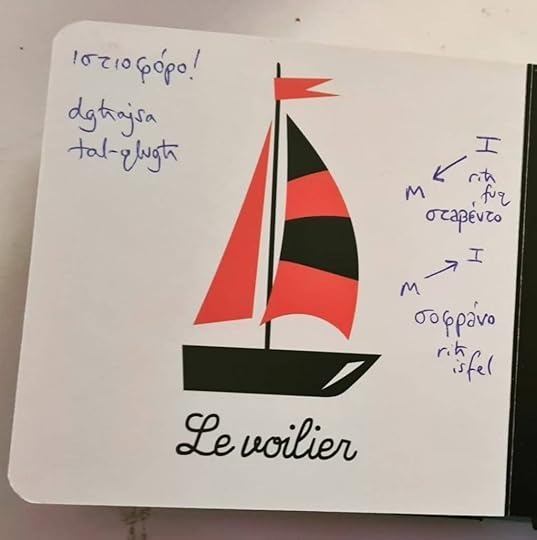 Ιστιοφόρο!
dgħajsa
tal-qlugħ
I
M
riħ
fuq
σταβέντο
I
M
σοφράνο
riħ
isfel
Le voilier